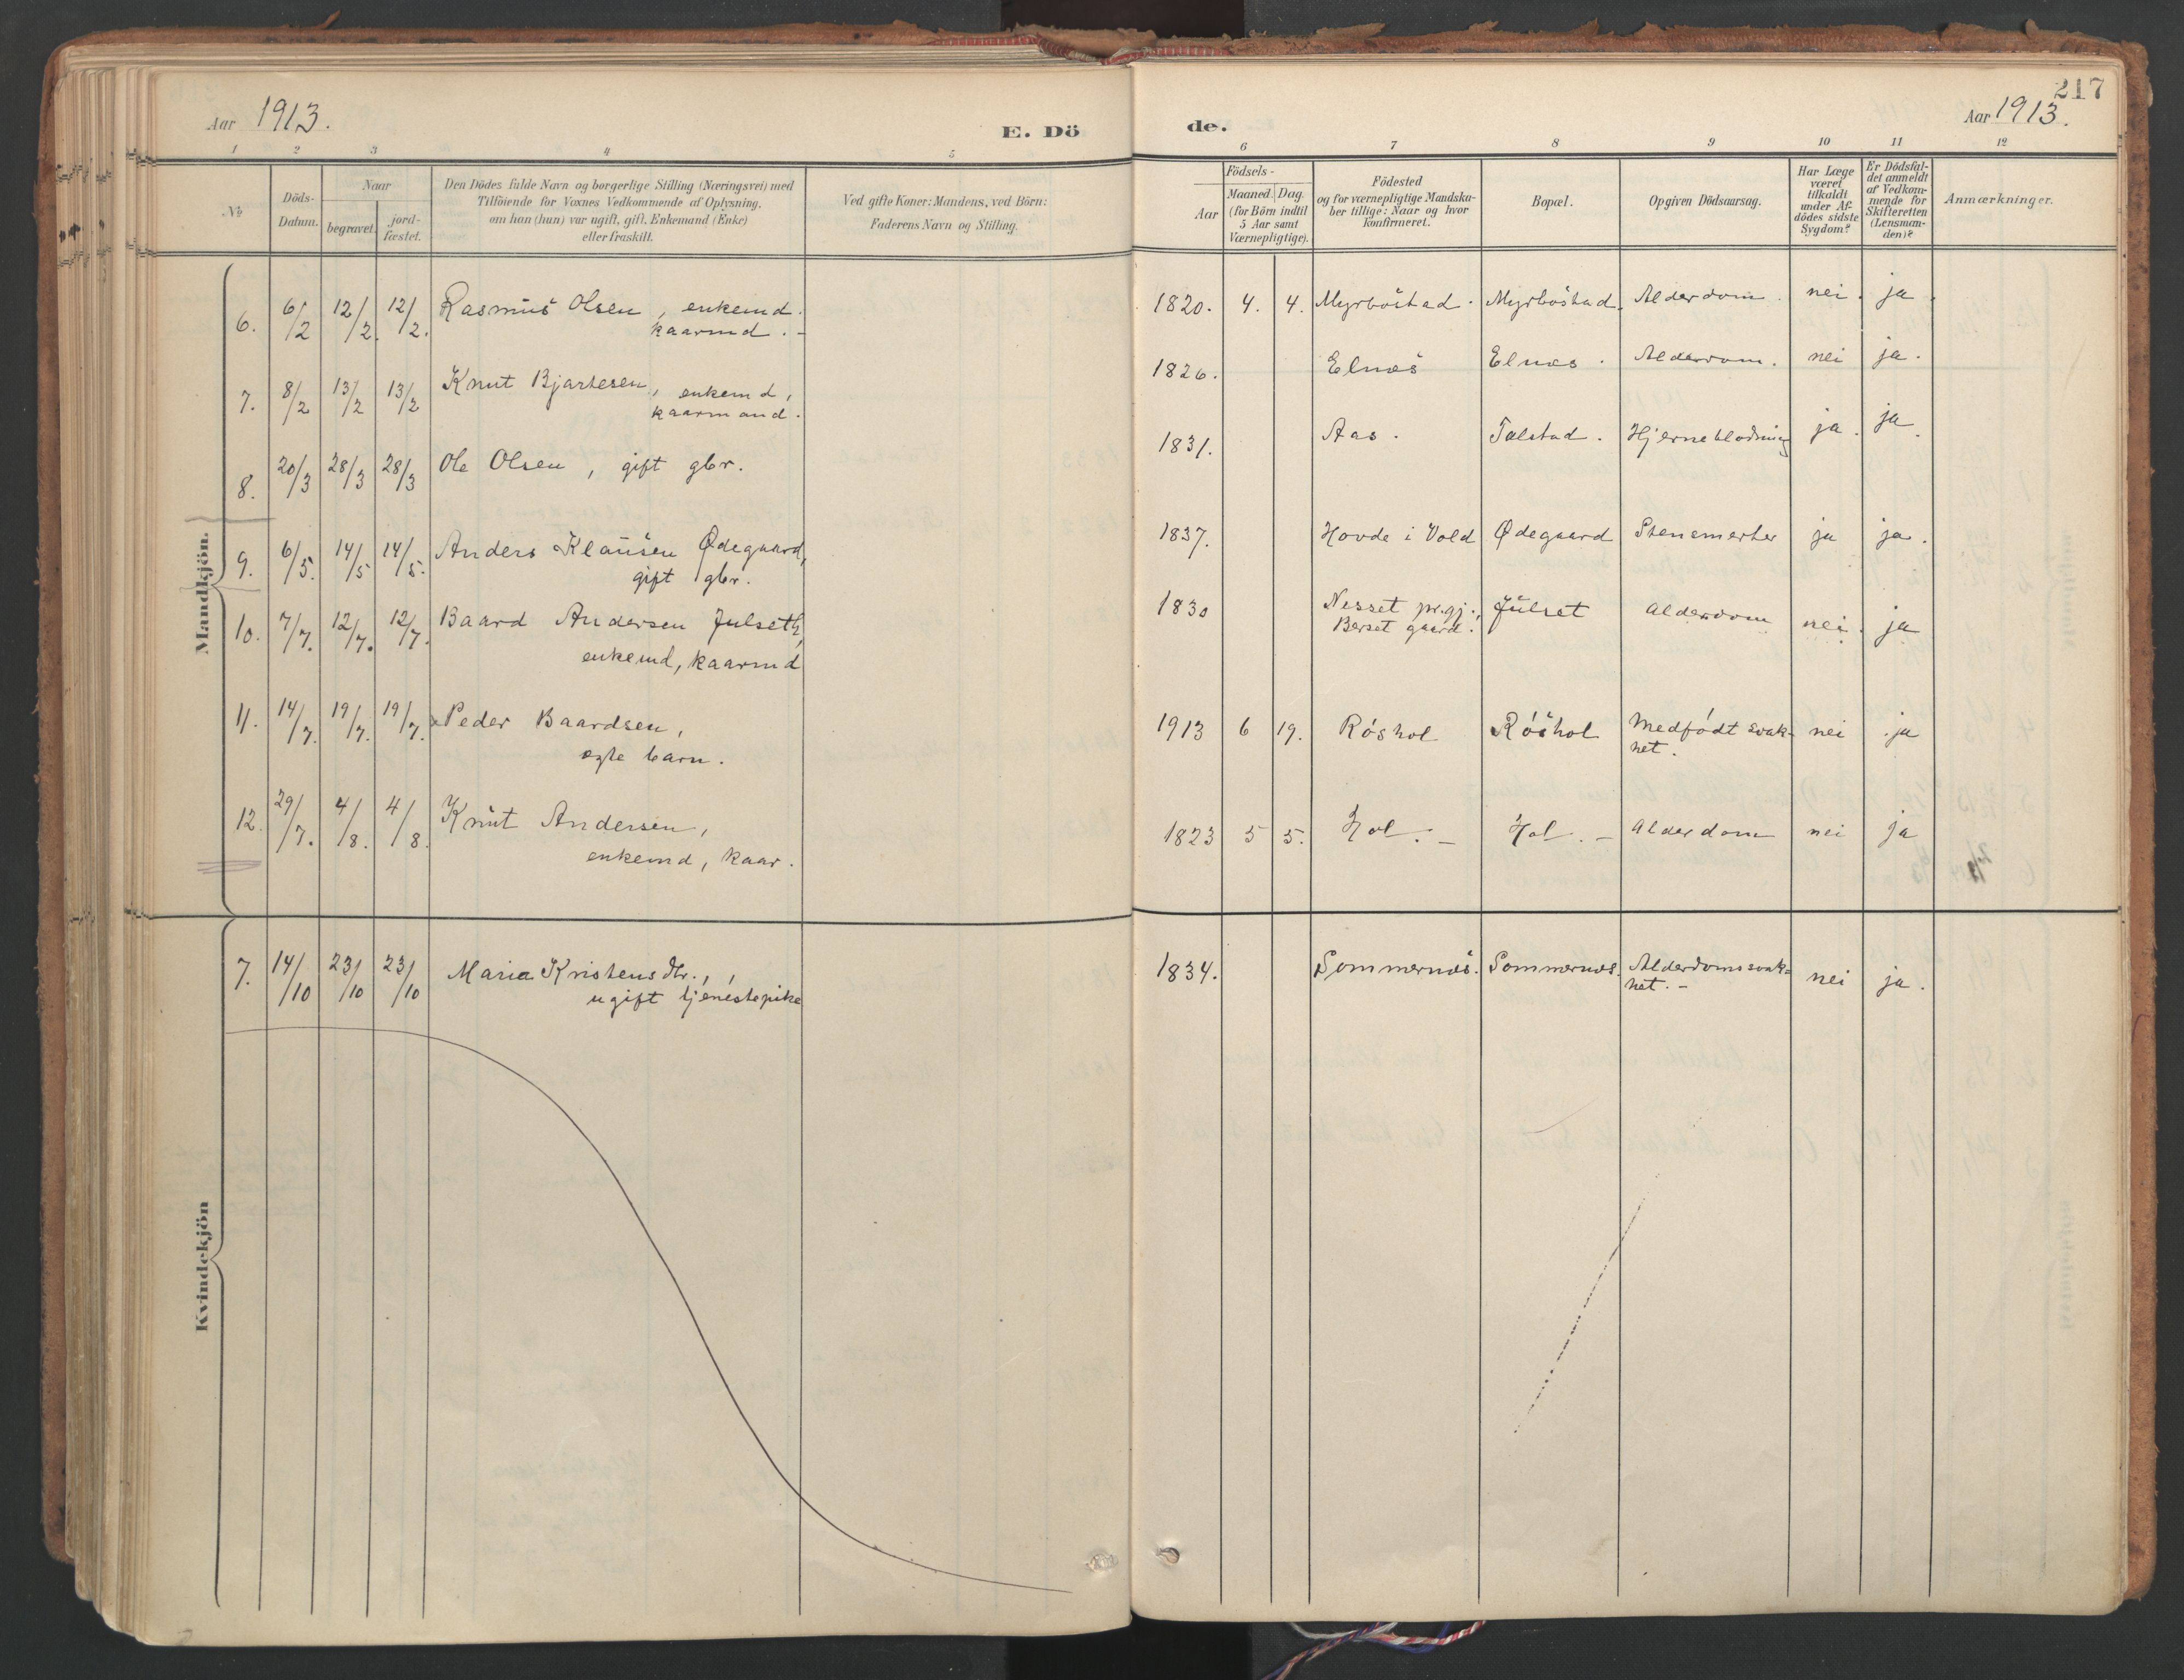 217
Aar 1913.
E. Dö
de.
Aar 1913.
1 2 3 4 5 6 7 8 9 10 11 12
№
Döds-
Datum.
Naar
begravet.
jord-
fæstet.
Den Dödes fulde Navn og borgerlige Stilling (Næringsvei) med
Tilföiende for Voxnes Vedkommende af Oplysning,
om han (hun) var ugift, gift, Enkemand (Enke)
eller fraskilt.
Ved gifte Koner: Mandens, ved Börn:
Faderens Navn og Stilling.
Födsels-
Aar
Maaned. Dag.
(for Börn indtil
5 Aar samt
Værnepligtige).
Födested
og for værnepligtige Mandska-
ber tillige: Naar og hvor
Konfirmeret.
Bopæl.
Opgiven Dödsaarsag.
Har Læge
været
tilkaldt
under Af-
dödes sidste
Sygdom?
Er Dödsfal-
det anmeldt
af Vedkom-
mende for
Skifteretten
(Lensman-
den)?
Anmærkninger.
Mandkjön.
6. 6/2 12/2. 12/2. Rasmus Olsen, enkemd. 1820. 4. 4. Myrbøstad. Myrbøstad. Alderdom. nei. ja.
kaarmd. -
7. 8/2 13/2 13/2 Knut Bjartesen, enkemd, 1826. Elnæs Elnæs. Alderdom. nei ja.
kaarmand.
8. 20/3 28/3 28/3 Ole Olsen, gift gbr. 1831. Aas. Talstad. Hjerneblødning ja. ja.
9. 6/5. 14/5 14/5. Anders Klausen Ødegaard, 1837. Hovde i Vold Ødegaard Stensmerter ja ja.
gift gbr.
10. 7/7. 12/7. 12/7. Baard Andersen Julseth, 1830 Nesset pr.gj., Julset Alderdom nei. ja
enkemd, kaarmd Berset gaard.
11. 14/7. 19/7. 19/7. Peder Baardsen, 1913 6 19. Røshol Røshol Medfødt svak- nei ja
ægte barn. het.
12. 29/7. 4/8. 4/8. Knut Andersen, 1823 5 5. Hol. - Hol. - Alderdom nei ja
enkemd, kaar.
Kvindekjön
7. 14/10 23/10 23/10 Maria Kristensdtr., 1834. Sommernæs. Sommernæs. Alderdomssvak- nei ja.
ugift tjenestepike het. -